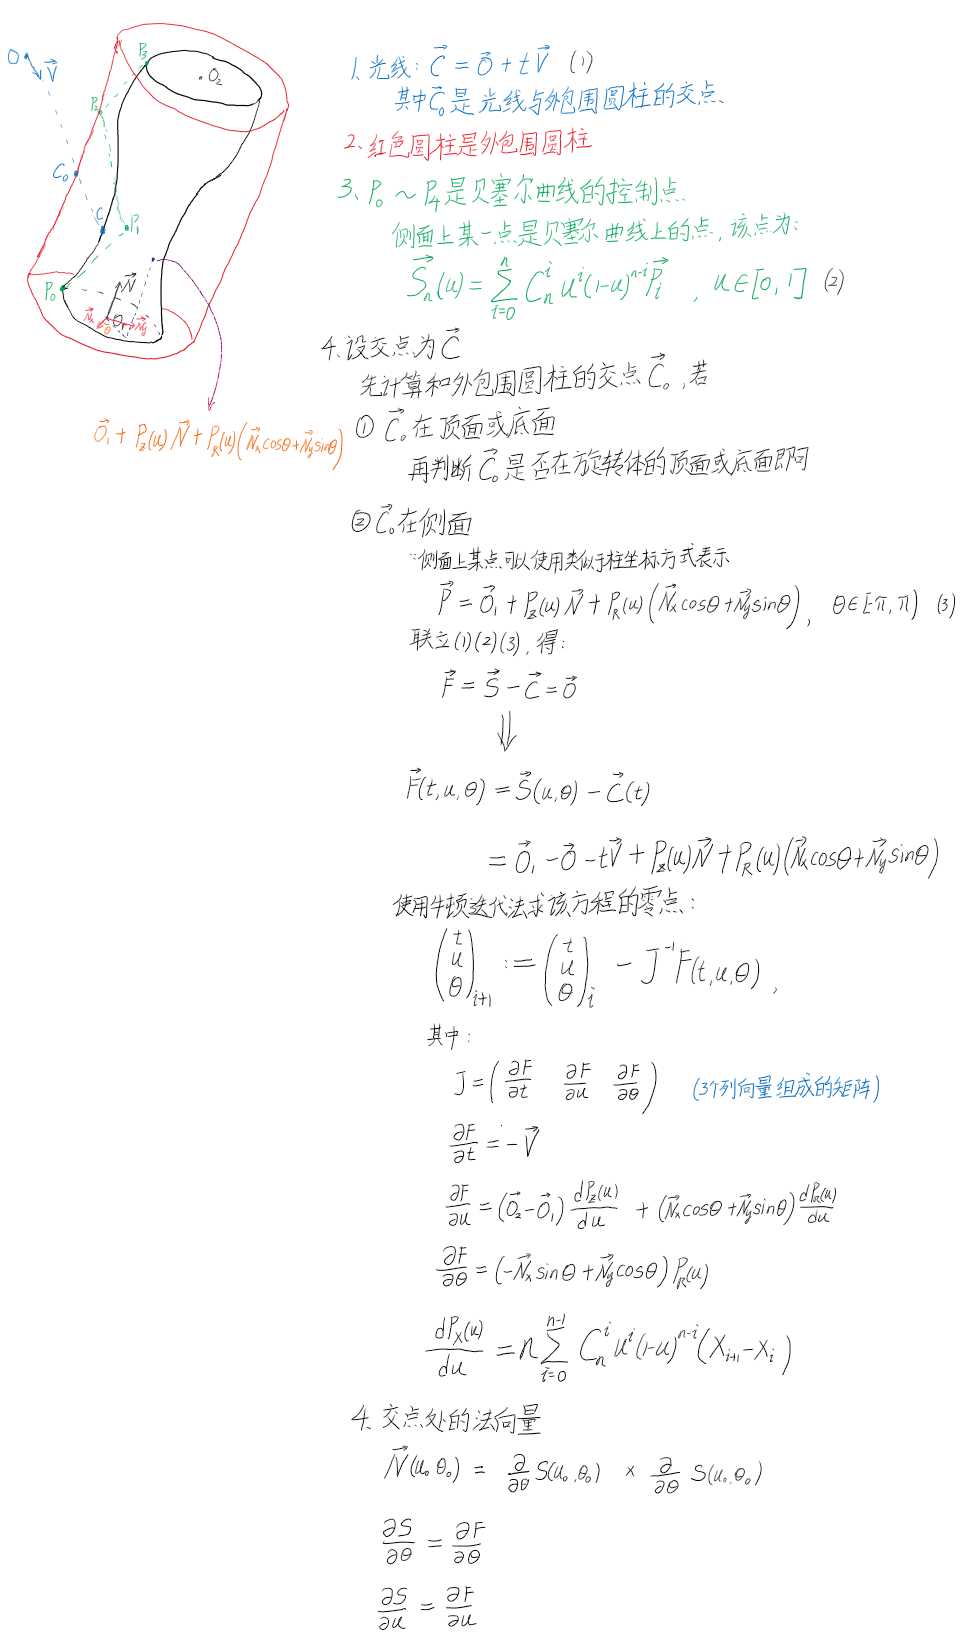 O
V⃗
P₃
O₂
P₂
C₀
C
P₁
P₀
N⃗
N⃗x
O₁
N⃗y
θ
O⃗₁ + P_z(u) N⃗ + P_R(u)(N⃗x cosθ + N⃗y sinθ)
1、光线: C⃗ = O⃗ + tV⃗ (1)
其中C⃗₀是光线与外包围圆柱的交点
2、红色圆柱是外包围圆柱
3、P₀ ~ P₄是贝塞尔曲线的控制点
侧面上某一点是贝塞尔曲线上的点, 该点为:
S⃗ₙ(u) = ∑_{i=0}^{n} C_n^i u^i (1-u)^{n-i} P⃗_i , u∈[0,1] (2)
4、设交点为C⃗
先计算和外包围圆柱的交点C⃗₀, 若
① C⃗₀在顶面或底面
再判断C⃗₀是否在旋转体的顶面或底面即可
② C⃗₀在侧面
∵侧面上某点可以使用类似于柱坐标方式表示
P⃗ = O⃗₁ + P_z(u) N⃗ + P_R(u)(N⃗x cosθ + N⃗y sinθ), θ∈[π, π) (3)
联立(1)(2)(3), 得:
F⃗ = S⃗ - C⃗ = 0⃗
⇓
F⃗(t,u,θ) = S⃗(u,θ) - C⃗(t)
= O⃗₁ - O⃗ - tV⃗ + P_z(u)N⃗ + P_R(u)(N⃗x cosθ + N⃗y sinθ)
使用牛顿迭代法求该方程的零点:
(t u θ)_{i+1} := (t u θ)_i - J⁻¹F(t,u,θ) ,
其中:
J = (∂F/∂t ∂F/∂u ∂F/∂θ) (3个列向量组成的矩阵)
∂F/∂t = -V⃗
∂F/∂u = (O⃗₂ - O⃗₁) dP_z(u)/du + (N⃗x cosθ + N⃗y sinθ) dP_R(u)/du
∂F/∂θ = (-N⃗x sinθ + N⃗y cosθ) P_R(u)
dP_X(u)/du = n ∑_{i=0}^{n-1} C_n^i u^i (1-u)^{n-i} (X_{i+1} - X_i)
4、交点处的法向量
N⃗(u₀,θ₀) = ∂/∂θ S(u₀,θ₀) × ∂/∂θ S(u₀,θ₀)
∂S/∂θ = ∂F/∂θ
∂S/∂u = ∂F/∂u